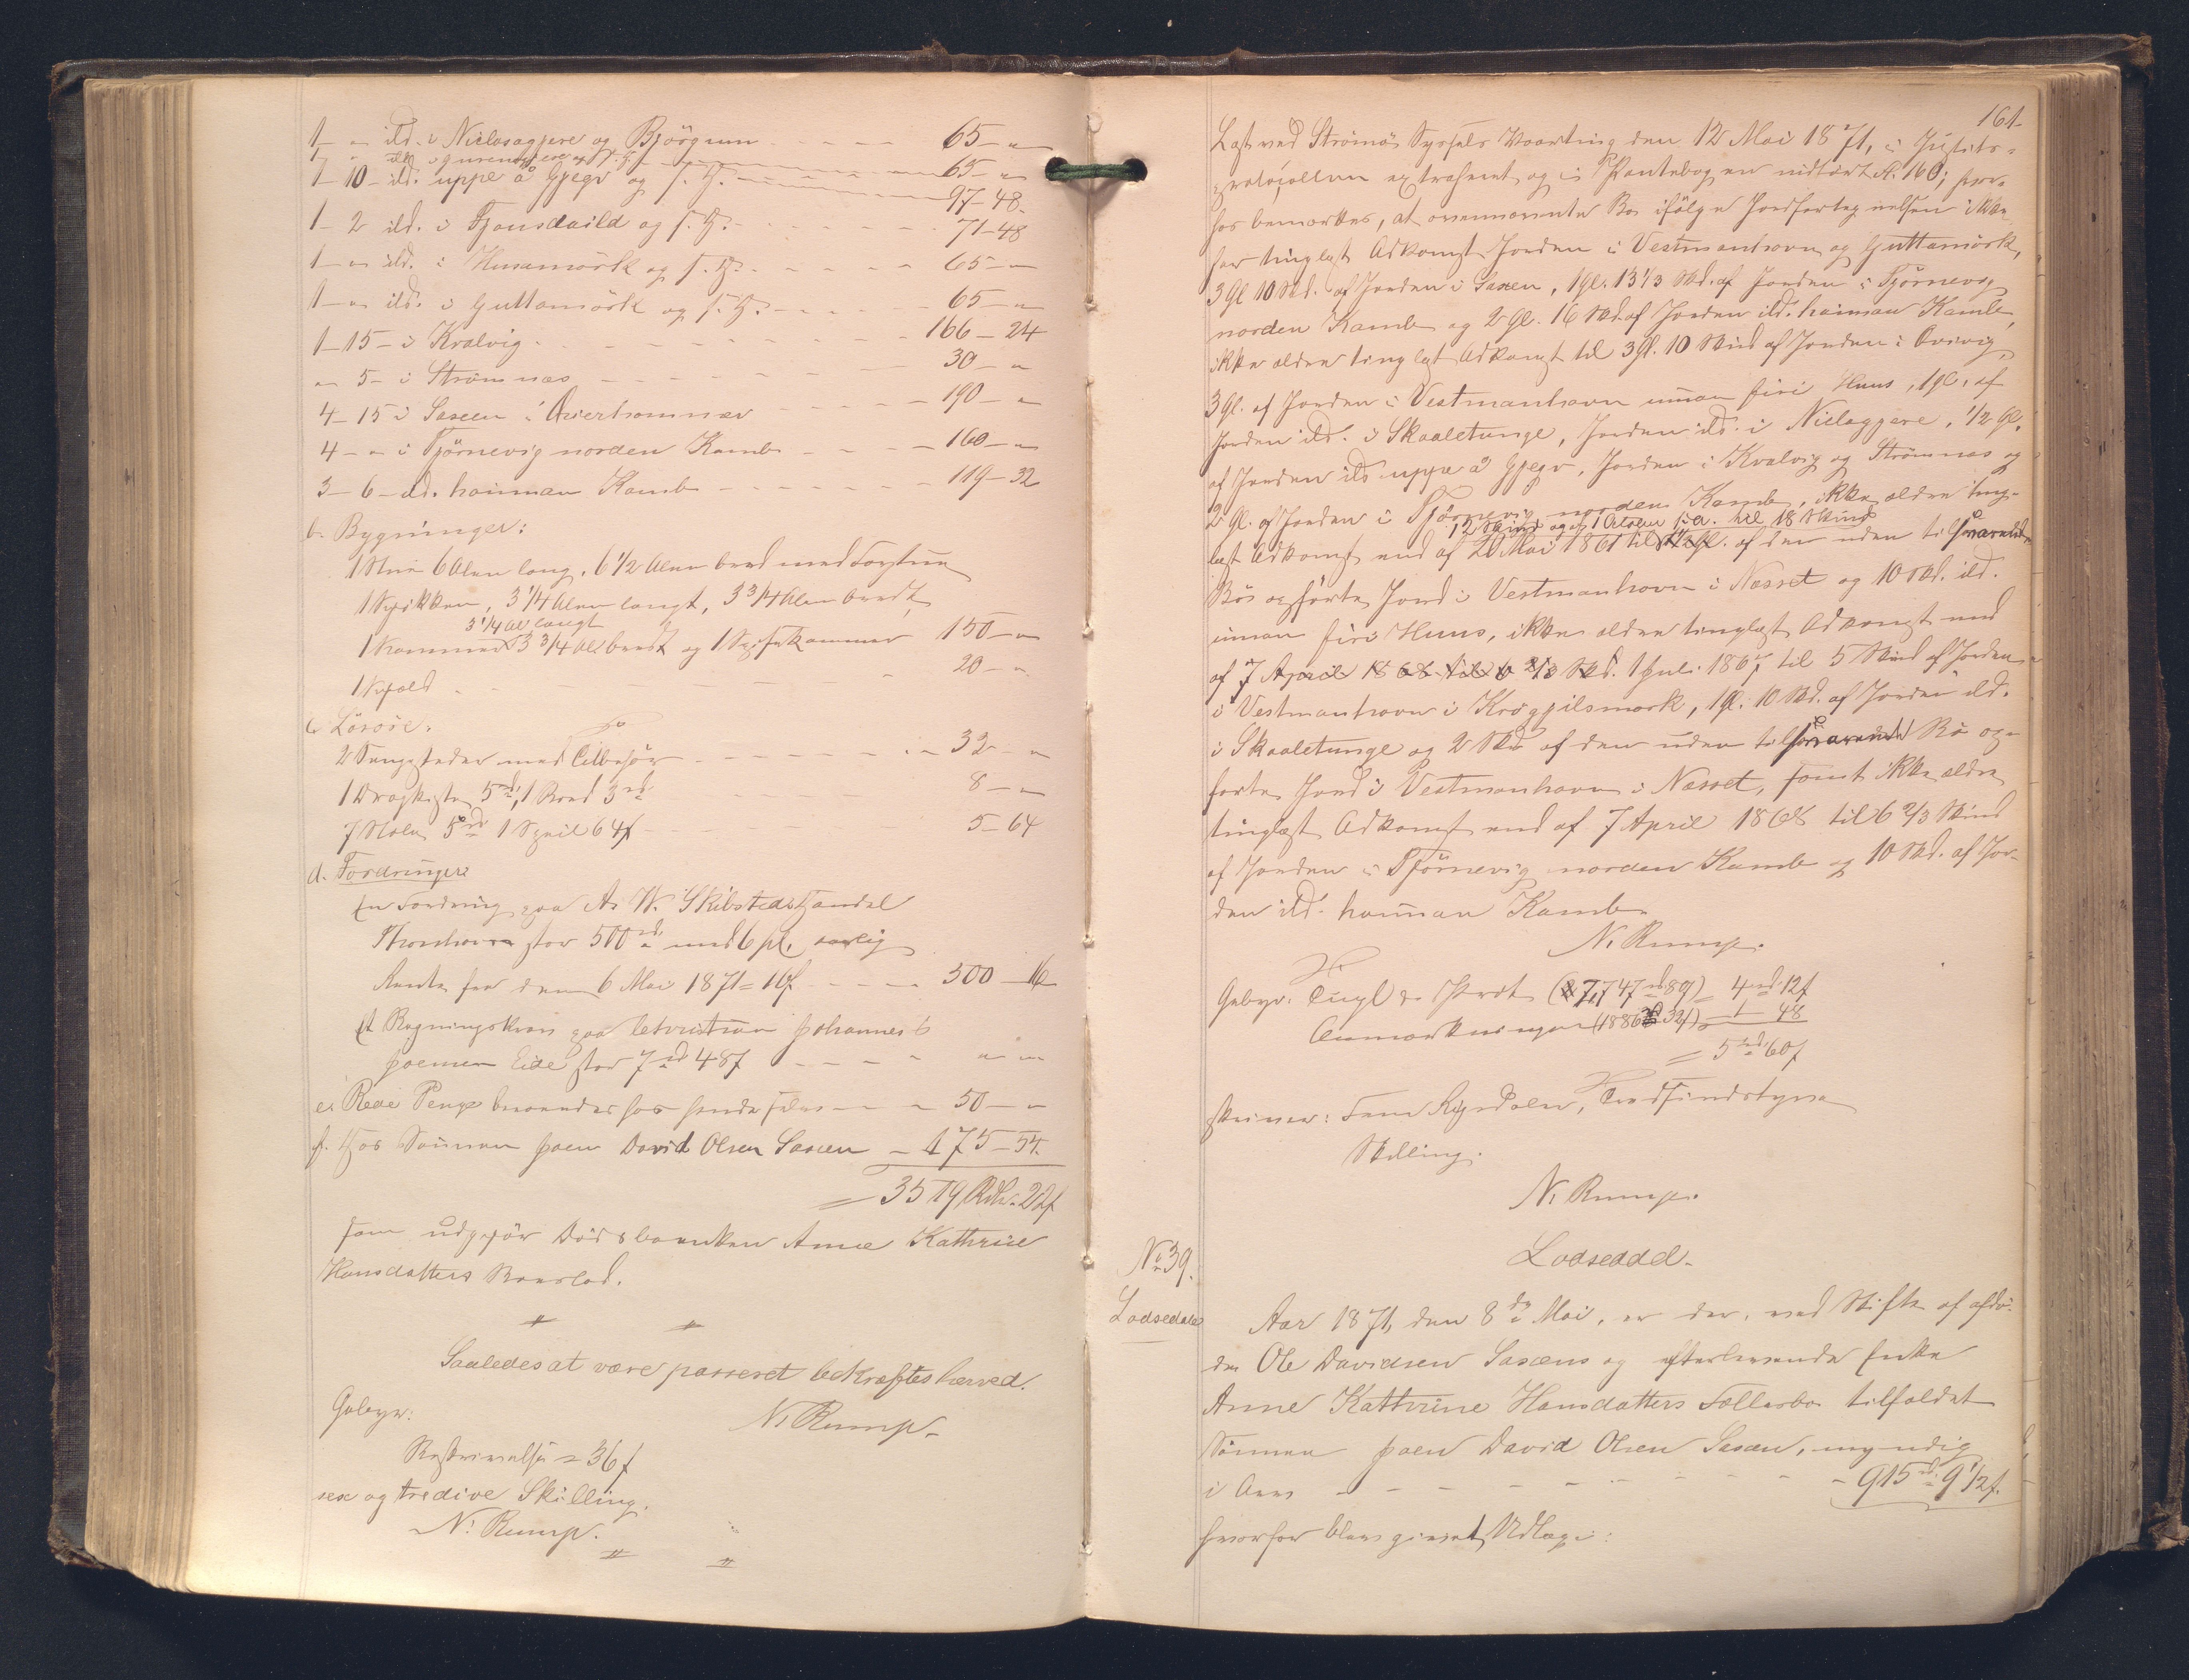 1 - „ ild. i Niclasagjere og Bjørgum - - - - 65 - „
1 - „ ild. i gjere og f. H. - - - 65 - „
1 - 10 - ild. uppe å Gjegv og f. H. - - - 97 - 48
1 - 2 ild. i Tjønsdaild og f. H. - - - - 71 - 48
1 - „ ild. i Husamørk og f. H. - - - - 65 - „
1 - „ ild. i Guttamørk og f. H. - - - - 65 - „
1 - 15 - i Kvalvig - - - - 166 - 24
„ 5 - i Strømnæs - - - - 30 - „
4 - 15 i Saxen i - - - 190 - „
4 - „ i Tjørnevig norden Kamb - - - 160 - „
3 - 6 - ild. haiman Kamb - - - - 119 - 32
b. Bygninger:
1 Stue 6 Alen lang, 6 1/2 Alen bred med Forstue
1 Kjøkken, 3 1/4 Alen langt, 3 3/4 Alen bredt,
3 1/4 Al langt
1 Kammer 3 3/4 Al bredt og 1 Spisekammer 150 - „
1 Kjæld - - - 20 - „
c. Løsøre:
2 Sengesteder med Tilbehør - - - - 32 - „
1 Dragkiste 5 rd, 1 Bord 3 rd - - - 8 - „
7 Stole 5 rd 1 Speil 64 f - - - 5 - 64
d. Fordringer:
En Fordring paa A. W. Skibsteds Handel
Thorshavn stor 500 rd. med 6 pC. aarlig
Rente fra den 6 Mai 1871 = 16 f - - - - 500 - 16
Et Regningskrav paa Johannes
Joensen Eide stor 7 rd 48 f - - - - „ „
e. Rede Penge beroende hos - - - 50 - „
f. Hos Sønnen Joen David Olsen Saxen - 475 - 54.
= 3519 Rdlr. 22 f
som udgjør Dødsboenken Anne Kathrine
Hansdatters Boeslod.
Saaledes at være passeret bekræftes herved.
N. Rump.
Gebyr:
Beskrivelse = 36 f
sex og tredive Skilling.
N. Rump.
161.
Læst ved Strømø Syssels Vaarting den 12 Mai 1871, i Justits-
protocollen extraheret og i Pantebogen indført A. 160; hvor-
hos bemærkes, at ovennævnte Bo ifølge Jordfortegnelsen ikke
har tinglæst Adkomst Jorden i Vestmanhavn og Guttamørk,
3 Gl 10 Skd. af Jorden i Saxen, 1 Gl. 13 1/3 Skd. af Jorden i Tjørnevig
norden Kamb og 2 Gl. 16 Skd. af Jorden ild. haiman Kamb,
ikke ældre tinglæst Adkomst til 3 Gl. 10 Skind af Jorden i Qvivig,
3 Gl. af Jorden i Vestmanhavn innan firi Huus, 1 Gl. af
Jorden ild. i Skaaletunge, Jorden ild. i Niclagjere, 1/2 Gl.
af Jorden ild uppe å Gjegv, Jorden i Kvalvig og Strømnæs og
2 Gl. af Jorden i Tjørnevig norden Kamb, ikke ældre ting-
12 Skind og af 1 til 18 Skind
læst Adkomst end af 20 Mai 1861 til 1 1/2 Gl. af den uden tilsvarende
Bø opførte Jord i Vestmanhavn i Næsset og 10 Skd. ild.
innan firi Huus, ikke ældre tinglæst Adkomst end
af 7 April 1868 til 6 2/3 Skd. 1 Juli 1867, til 5 Skind af Jorden
i Vestmanhavn i Krøgjilsmørk, 1 Gl. 10 Skd. af Jorden ild.
i Skaaletunge og 2 Skd af den uden tilsvarende Bø op-
førte Jord i Vestmanhavn i Næsset, samt ikke ældre
tinglæst Adkomst end af 7 April 1868 til 6 2/3 Skind
af Jorden i Tjørnevig norden Kamb og 10 Skd. af Jor-
den ild. haiman Kamb.
N. Rump.
Gebyr: Tingl & Prot (1,747 rd 89) = 4 rd 12 f
Anmærkninger (1886 rd 32 f) = 1 - 48
= 5 rd 60 f
skriver: Fem Rigsdaler, Tredsindstyve
Skilling.
N. Rump.
No 39.
Lodseddel
Lodseddel.
Aar 1871, den 8de Mai, er der, ved Skifte af afdø-
de Ole Davidsen Saxens og efterlevende Enke
Anne Kathrine Hansdatters Fællesbo tilfaldet
Sønnen Joen David Olsen Saxen, myndig
i Arv - - - - - - - 915 rd 9 1/2 f.
hvorfor blev givet Udlæg: